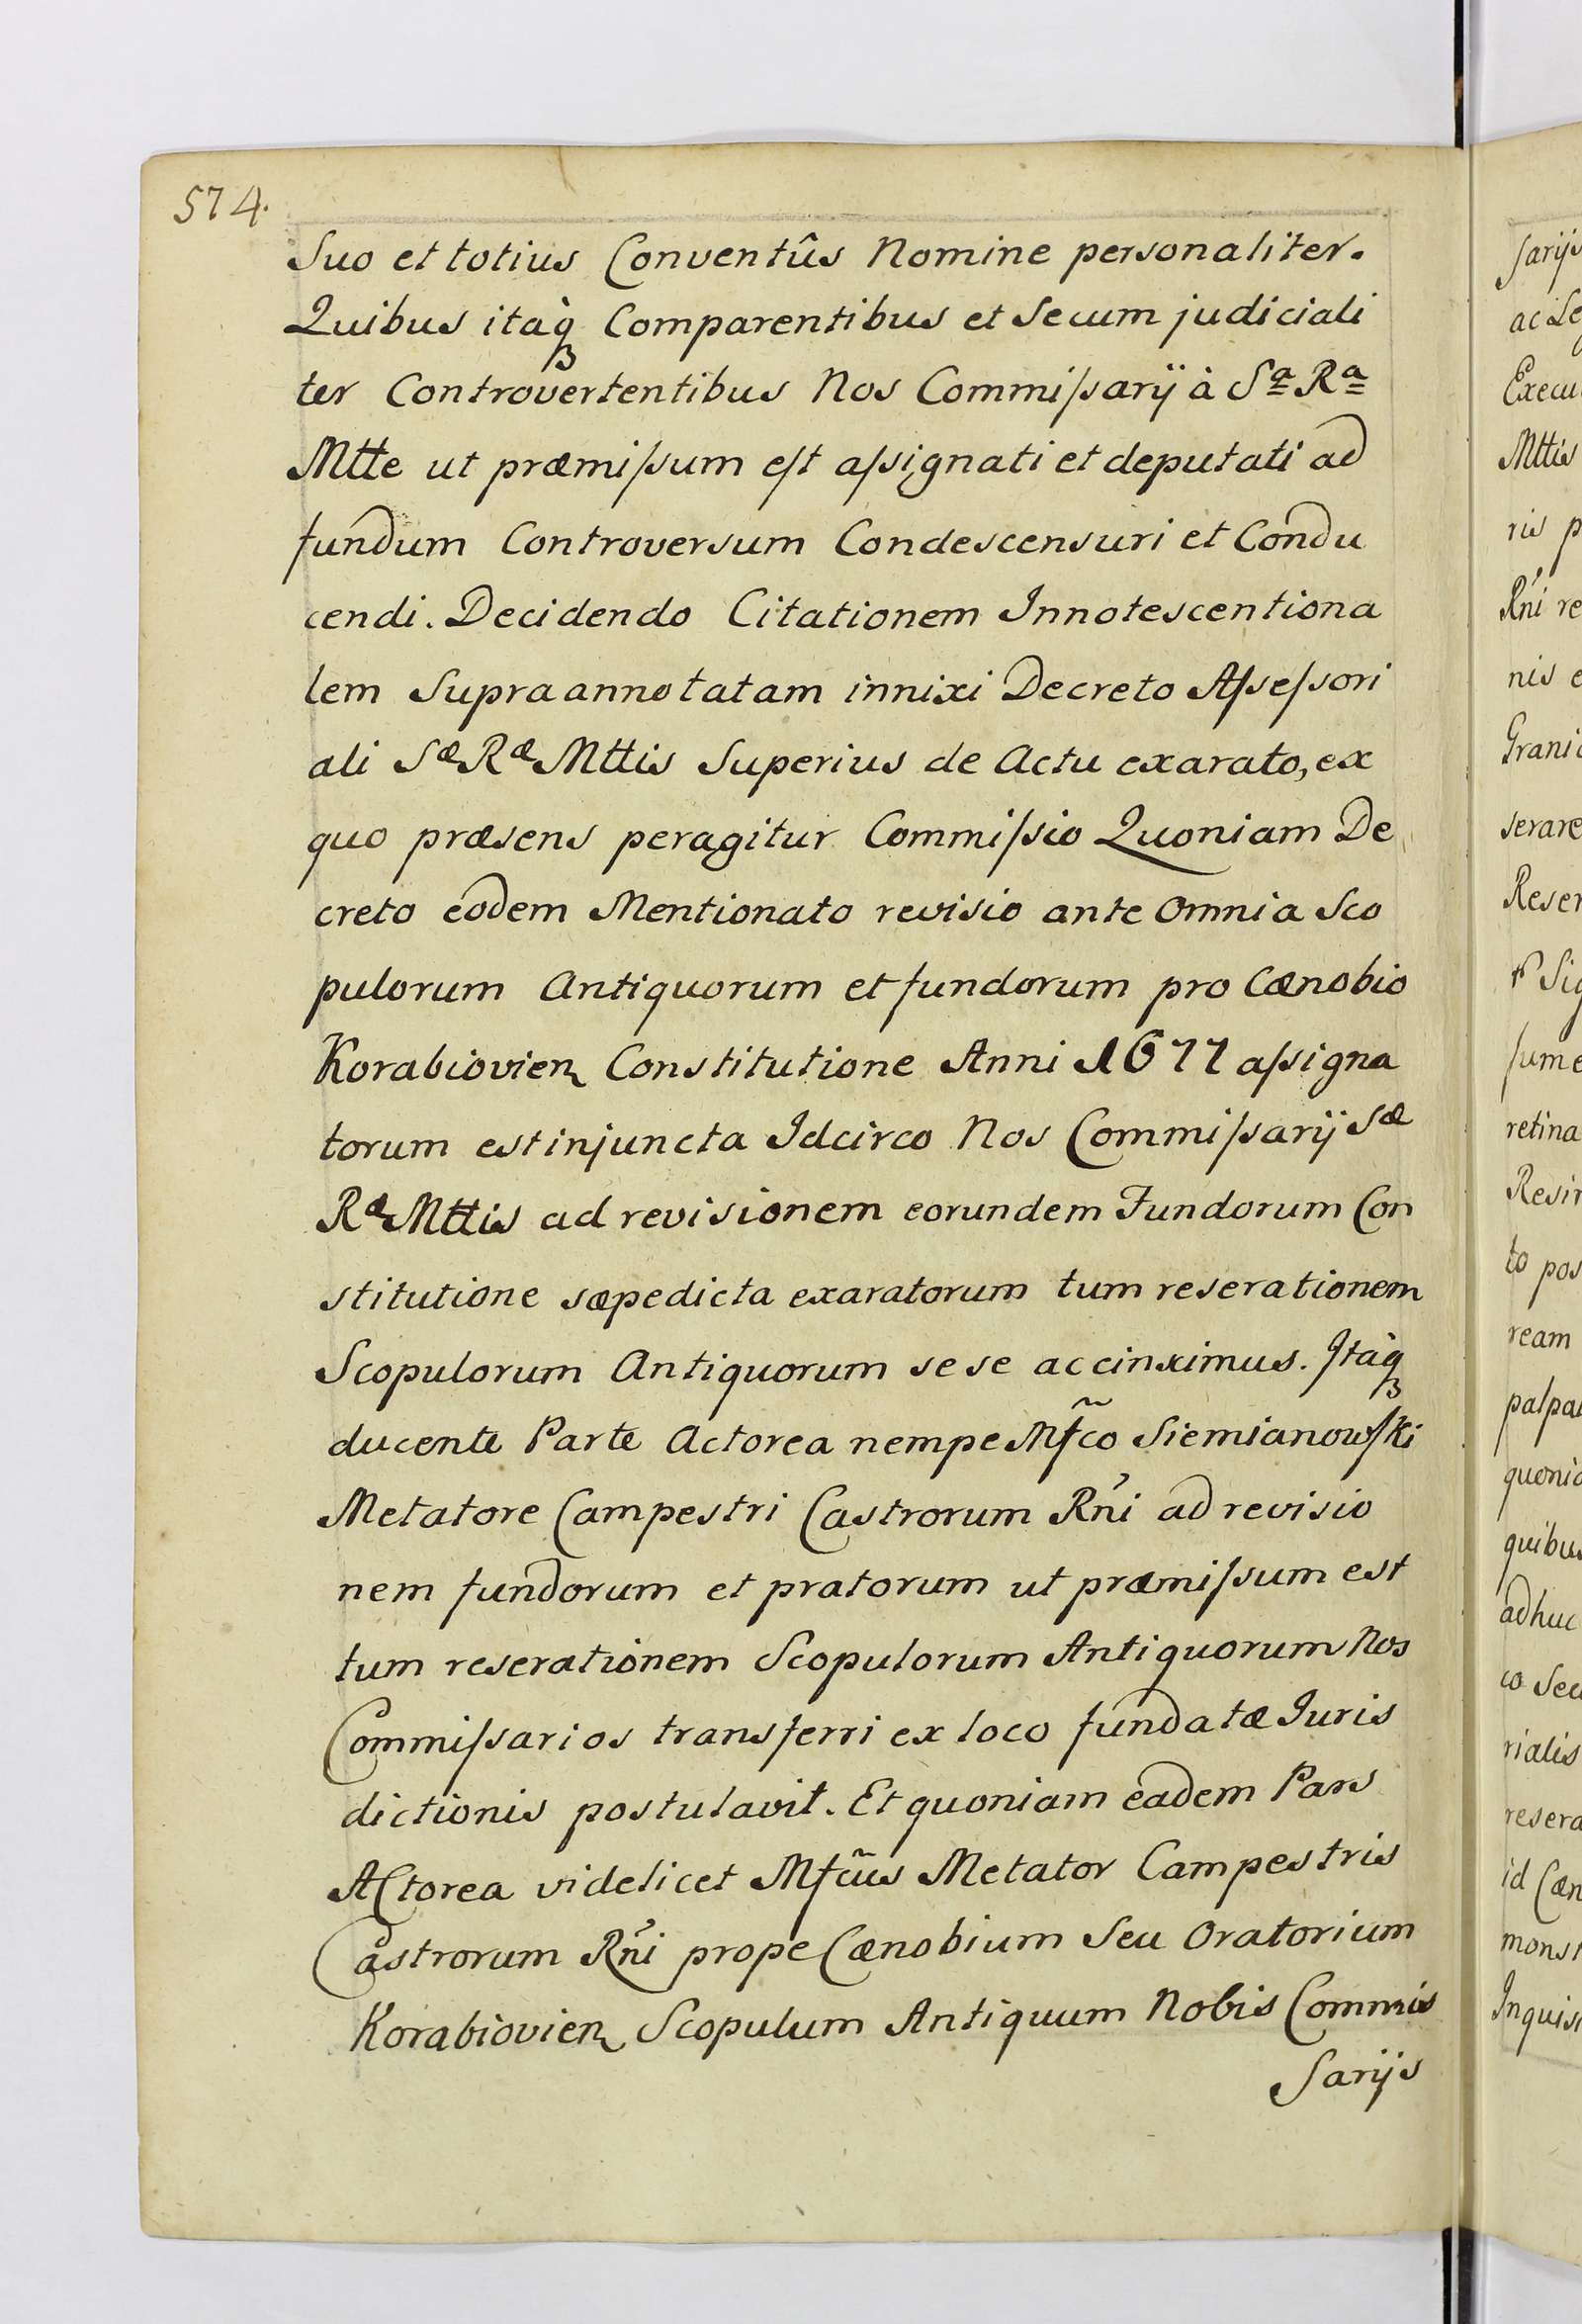 574.
Suo et totius Conventûs Nomine personaliter.
Quibus itaq̀ꝫ Comparentibus et Secum judiciali
ter Controvertentibus Nos Commiſsarÿ à Sª Rª
Mtte ut præmiſsum eſt aſsignati et deputati ad
fundum Controversum Condescensuri et Condu
cendi. Decidendo Citationem Innotescentiona
lem Supra annotatam innixi Decreto Aſseſsori
ali Sæ Ræ Mttis Superius de Actu exarato, ex
quo præsens peragitur Commiſsio Quoniam De
creto eodem Mentionato revisio ante omnia Sco
pulorum Antiquorum et fundorum pro Cænobio
Korabiovien Constitutione Anni 1677 aſsigna
torum est injuncta Idcirco Nos Commiſsarij Sæ
Ræ Mttis ad revisionem eorundem Fundorum Con
stitutione sæpedicta exaratorum tum reserationem
Scopulorum Antiquorum sese accinximus. Itaq̀ꝫ
ducente Parte Actorea nempe Mf̃co Siemianowſki
Metatore Campestri Castrorum Rńi ad revisio
nem fundorum et pratorum ut præmiſsum est
tum reserationem Scopulorum Antiquorum Nos
Commiſsarios transferri ex loco fundatæ Iuris
dictionis postulavit. Et quoniam eadem Pars
Actorea videlicet Mfcũs Metator Campestris
Castrorum Rńi prope Cænobium Seu Oratorium
Korabiovien Scopulum Antiquum Nobis Commis
Sarijs
sarijs
ac Le
Execu
Mttis
ris p
Rńi re
nis e
Granic
serare
Reser
Sig
sume
retina
Resir
to pos
ream
palpat
quonia
quibus
adhuc
co Seu
rialis
resera
id Cæn
monst
Inquisi